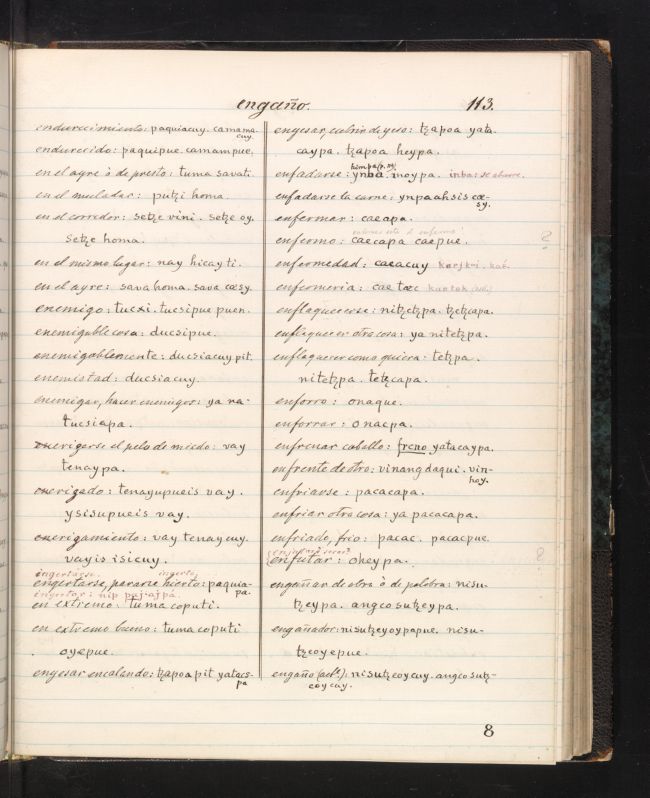 engaño.
113.
endurecimiento: paquiacuy. camama
cuy.
endurecido: paquipue. camampue.
en el agre ò de presto: tuma savati.
en el muladar: putzi homa.
en el corredor: setze vini. setze oy.
setze homa.
en el mismo lugar: nay hicayti.
en el ayre: sava homa. sava cœsy.
enemigo: tucsi. tucsipue puen.
enemigable cosa: ducsipue.
enemigablemente: ducsiacuy pit.
enemistad: ducsiacuy.
enemigar, hacer enemigos: ya na-
tucsiapa.
enerigarse el pelo de miedo: vay
tenaypa.
enerigado: tenayupueis vay.
ysisupueis vay.
enerigamiento: vay tenaycuy.
vayis isicuy.
ingertarse. ingerto,
engertarse, pararse hierto: paquia-
pa.
ingertar: nip paj-ajpá.
en extremo: tuma coputi.
en extremo bueno: tuma coputi
oyœpue.
engesar encalando: tzapoa pit yatacs-
pa
engesar, cubrir de yeso: tzapoa yata-
caypa. tzapoa heypa.
enfadarse: ynba. inoypa. inba: se aburre.
enfadarse la carne: ynpaahsis cœ-
sy.
enfermar: caœapa.
enfermo: caecapa caepue. ?
enfermedad: caeacuy
enfermeria: cae tœc kaetok
enflaquecerse: nitzetzpa. tzetzcapa.
enflaquecer otra cosa: ya nitetzpa.
enflaquecer como quiera: tetzpa.
nitetzpa. tetzcapa.
enforro: onaque.
enforrar: onacpa.
enfrenar caballo: freno yatacaypa.
enfrente de otro: vinang daqui. vin-
hoy.
enfriarse: pacacapa.
enfriar otra cosa: ya pacacapa.
enfriado, frio: pacac. pacacpue.
enfutar: oheypa. ?
engañar de obra ò de palabra: nisu-
tzeypa. angcosutzeypa.
engañador: nisutzeyoypapue. nisu-
tzeoyepue.
engaño (act.): nisutzeoycuy. angcosutz-
eoycuy.
8